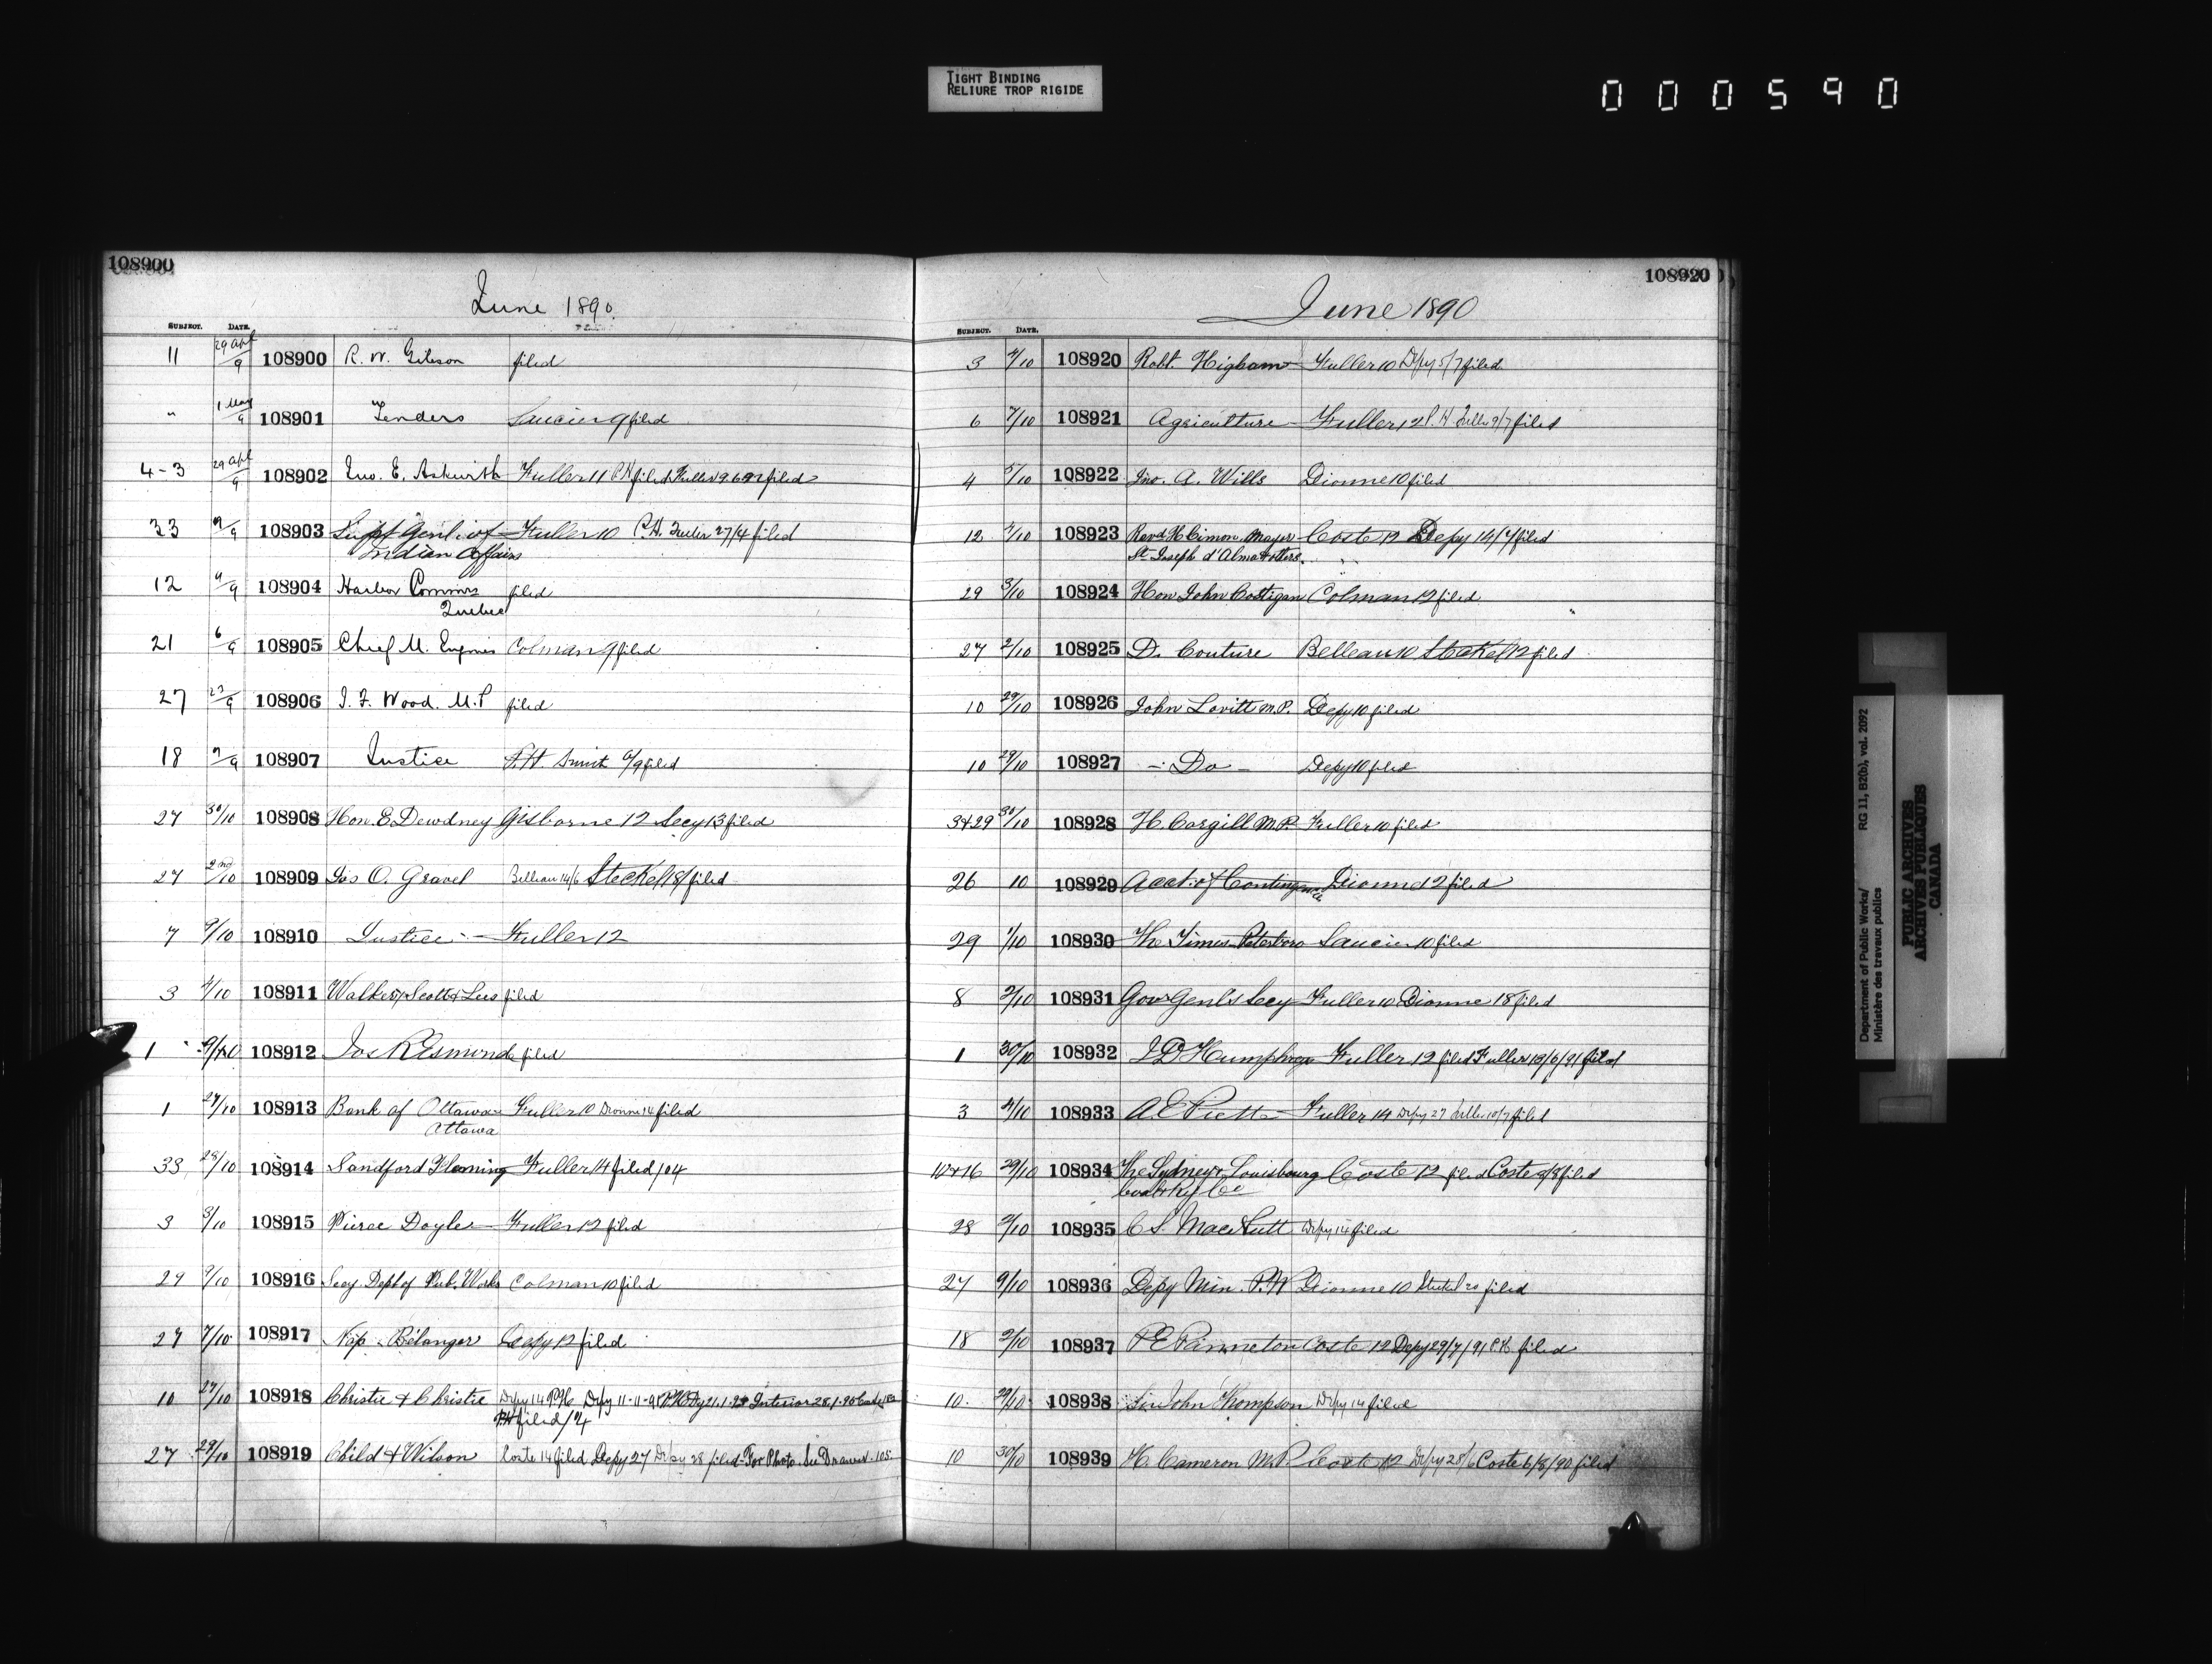 TIGHT BINDING
RELIURE TROP RIGIDE
000590
108900
June 1890
SUBJECT. DATE.
11 29 Apl/9 108900 R. W. Gibson filed
" 1 May/9 108901 Tenders Saucier 9 filed
4-3 29 Apl/9 108902 Jno. E. Askwith Fuller 11 P.H filed Fuller 19.6.91 filed
33 9/9 108903 Supt Genl of Fuller 10 P.H. Fuller 27/4 filed
Indian Affairs
12 9/9 108904 Harbor Commrs filed
Quebec
21 6/9 108905 Chief M. Engineer Colman 9 filed
27 29/9 108906 J. F. Wood. M.P filed
18 9/9 108907 Justice P.H 9/9 filed
27 30/10 108908 Hon. E. Dewdney Gisborne 12 Secy 13 filed
27 2nd/10 108909 Jos O. Gravel Belleau 14/6 Steckel 18/ filed
7 9/10 108910 Justice Fuller 12
3 4/10 108911 Walker, Scott & Lees filed
1 9/10 108912 Jos R Esmonde filed
1 27/10 108913 Bank of Ottawa Fuller 10 Dionne 14 filed
Ottawa
33 28/10 108914 Sandford Fleming Fuller 14 filed 104
3 3/10 108915 Pierce Doyle Fuller 12 filed
29 9/10 108916 Secy Dept of Pub. Works Colman 10 filed
27 7/10 108917 Nap. Bélanger Depy 12 filed
10 27/10 108918 Christie & Christie Depy 14 P.H. Depy 11-11-91 Interior 28.1.
PH filed
27 29/10 108919 Child & Wilson Coste 14 filed Depy 27 Depy 28 filed - For Photo. See Drawer. 105
108920
June 1890
SUBJECT. DATE.
3 4/10 108920 Robt. Higham Fuller 10 Depy 5/7 filed
6 7/10 108921 Agriculture Fuller 12 P.H Fuller 9/7 filed
4 5/10 108922 Jno. A. Wills Dionne 10 filed
12 3/10 108923 Revd H Cimon Mayor Coste 12 Depy 14/7 filed
St Joseph d'Alma & others
29 3/10 108924 Hon John Costigan Colman 12 filed
27 2/10 108925 D. Couture Belleau 10 Steckel 12 filed
10 29/10 108926 John Lovitt M.P. Depy 10 filed
10 29/10 108927 - Do - Depy 10 filed
3&29 30/10 108928 H. Cargill M.P. Fuller 10 filed
26 10 108929 Acct. of Contingencies Dionne 12 filed
29 1/10 108930 The Times Peterboro Saucier 10 filed
8 2/10 108931 Gov Genl's Secy Fuller 10 Dionne 18 filed
1 30/10 108932 J D Humphreys Fuller 12 filed Fuller 19/6/91 filed
3 4/10 108933 A E Fuller 14 Depy 27 Fuller 10/7 filed
10&16 29/10 108934 The Sydney & Louisbourg Coste 12 filed Coste 2/8 filed
Coal & Ry Co
28 2/10 108935 C S. MacNutt Depy 14 filed
27 9/10 108936 Depy Min. P.W Dionne 10 Steckel 20 filed
18 2/10 108937 P E Panneton Coste 12 Depy 29/7/91 P.H. filed
10 29/10 108938 Sir John Thompson Depy 14 filed
10 30/10 108939 H. Cameron M.P. Coste 12 Depy 28/6 Coste 6/8/90 filed
Department of Public Works/ RG 11, B2(b), vol. 2092
Ministère des travaux publics
PUBLIC ARCHIVES
ARCHIVES PUBLIQUES
CANADA